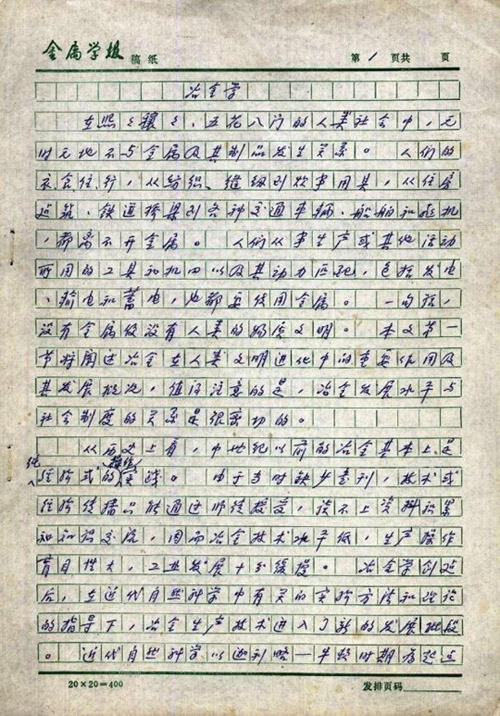 金属学报 稿纸 第 1 页共 页
冶金学
在熙熙攘攘、五花八门的人类社会中，无
时无地不与金属及其制品发生关系。人们的
衣食住行，从纺织、缝纫到炊事用具，从住房
建筑、铁道桥梁到各种交通车辆、船舶和飞机
，都离不开金属。人们从事生产或其他活动
所用的工具和机四以及其动力匹配，包括发电
、输电和蓄电，也都要使用金属。一句话，
没有金属没有人类的物质文明。本文第一
节将阐述冶金在人类文明进化中的重要作用及
其发展概况，值得注意的是，冶金发展水平与
社会制度的关系是很密切的。
从历史上看，中世纪以前的冶金基本上是
纯经验式的操作实践。由于当时缺少书刊，技术或
经验传播只能通过师徒授受，谈不上资料积累
和知识交流，因而冶金技术水平低，生产操作
盲目性大，工业发展十分缓慢。冶金学创建
后，在近代自然科学中有关的实验方法和理论
的指导下，冶金生产技术进入了新的发展阶段
。近代自然科学以
20×20=400 发排页码